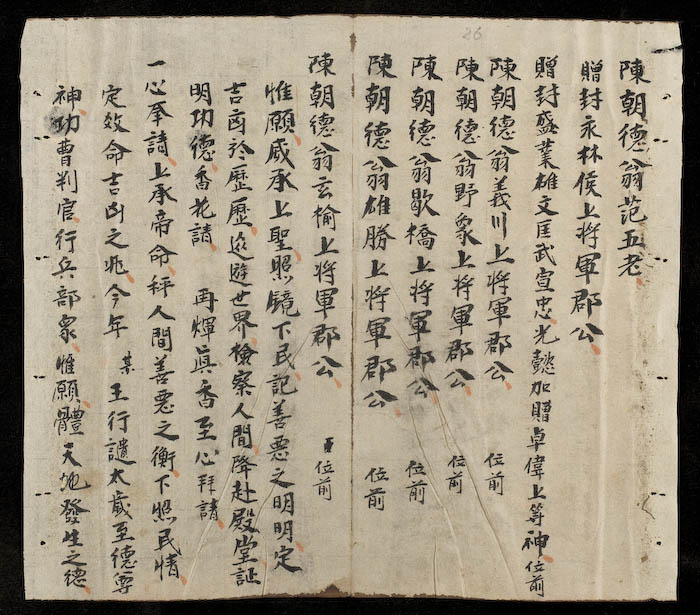 26
陳朝德翁范五老
贈封永林侯上將軍郡公
贈封盛業雄文匡武宣忠光懿加贈卓偉上等神位前
陳朝德翁義川上將軍郡公 位前
陳朝德翁野象上將軍郡公 位前
陳朝德翁歇橋上將軍郡公 位前
陳朝德翁雄勝上將軍郡公 位前
陳朝德翁玄榆上將軍郡公 位前
惟願咸承上聖照鏡下民記善惡之明明定
吉凶於歷歷遊世界檢察人間降赴殿堂証
明功德香花請 再煇眞香至心拜請
一心奉請上承帝命秤人間善惡之衡下照民情
定效命吉凶之兆今年某王行譴太歲至德尊
神功曹判官行兵部眾惟願體天地發生之德